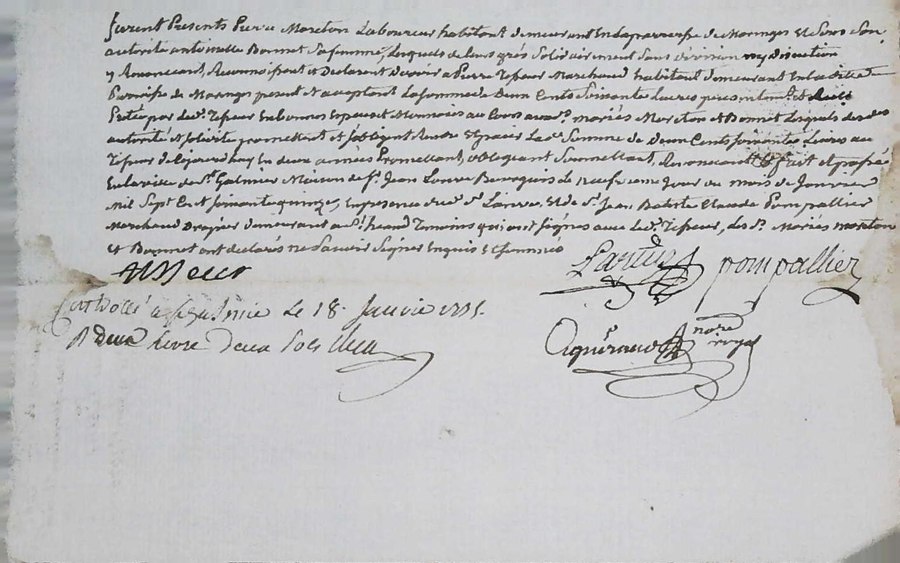 furent Presents Pierre Moreton Laboureur habitant demeurant En la parroisse de Maringes Et Sous Son
autorité antoinette Bonnet Sa femme, Lesquels de leurs grés Solidairement Sans division ny discution
y Renoncant, Reconnoissent et Declarent devoir a Pierre Tisseur Marchand habitant demeurant En la dite
Parroisse de Maringes present et acceptant La somme de deux Cents Soixante Livres
Prêtée par Led. Tisseur En bonnes Especes et Monnoies au Cours auxd. mariés Moreton et Bonnet Lesquels de lad.
autorité et solidité promettent et s'obligent Rendre et payer La de. Somme de deux Cents soixante Livres au
Tisseur de Cejourdhuy En deux années Promettant, obligeant Soumettant, Renoncant fait et passé
En la ville de St. Galmier Maison de Sr. Jean Bourgeois Le jour du mois de Janvier
Mil Sept Cent soixante quinze, En presence dud. Sr. Et de Sr. Jean Batiste Claude Pompallier
Marchand Drapier demeurant aud. St. heand Temoins qui ont signés avec Led. Tisseur, Les d. Mariés moreton
et Bonnet ont declarés ne Savoir Signer Enquis Et Sommés
pompallier
Controllé a st galmie Le 18 Janvie 1775.
R deux livre Deux sols
nore
royal